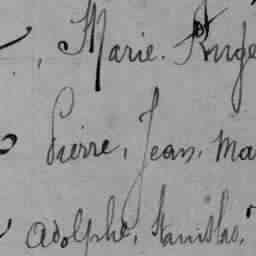 , Marie. Ange
Pierre, Jean, Ma
Adolphe, Stanislas,